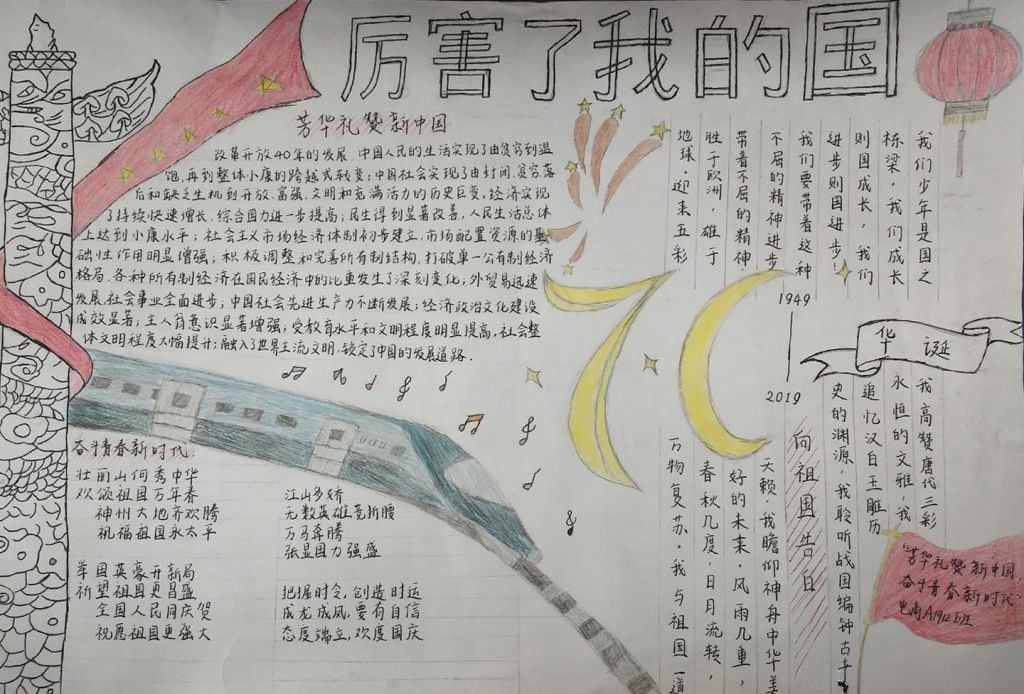 厉害了我的国
芳华礼赞新中国
改革开放40年的发展，中国人民的生活实现了由贫穷到温
饱，再到整体小康的跨越式转变；中国社会实现了由封闭、贫穷、落
后和缺乏生机到开放、富强、文明和充满活力的历史巨变。经济实现
了持续快速增长，综合国力进一步提高；民生得到显著改善，人民生活总体
上达到小康水平；社会主义市场经济体制初步建立，市场配置资源的基
础性作用明显增强；积极调整和完善所有制结构，打破单一公有制经济
格局，各种所有制经济在国民经济中的比重发生了深刻变化；外贸易迅速
发展，社会事业全面进步；中国社会先进生产力不断发展；经济政治文化建设
成效显著；主人翁意识显著增强；受教育水平和文明程度明显提高，社会整
体文明程度大幅提升；融入了世界主流文明，锁定了中国的发展道路。
我们少年是国之
栋梁，我们成长
则国成长，我们
进步则国进步！
我们要带着这种
不屈的精神进步
带着不屈的精神
胜于欧洲，雄于
地球，迎来五彩
70
1949
2019
华诞
奋斗青春新时代
壮丽山河秀中华
欢颂祖国万年春
神州大地齐欢腾
祝福祖国永太平
举国英豪开新局
祈望祖国更昌盛
全国人民同庆贺
祝愿祖国更强大
江山多娇
无数英雄竞折腰
万马奔腾
张显国力强盛
把握时令，创造时运
成龙成凤，要有自信
态度端立，欢度国庆
向祖国告白
我高赞唐代三彩
永恒的文雅，我
追忆汉白玉雕历
史的渊源，我聆听战国编钟古卡
天籁，我瞻仰神舟中华美
好的未来，风雨几重，
春秋几度，日月流转，
万物复苏。我与祖国一道
“芳华礼赞新中国，
奋斗青春新时代”
电商A1912班